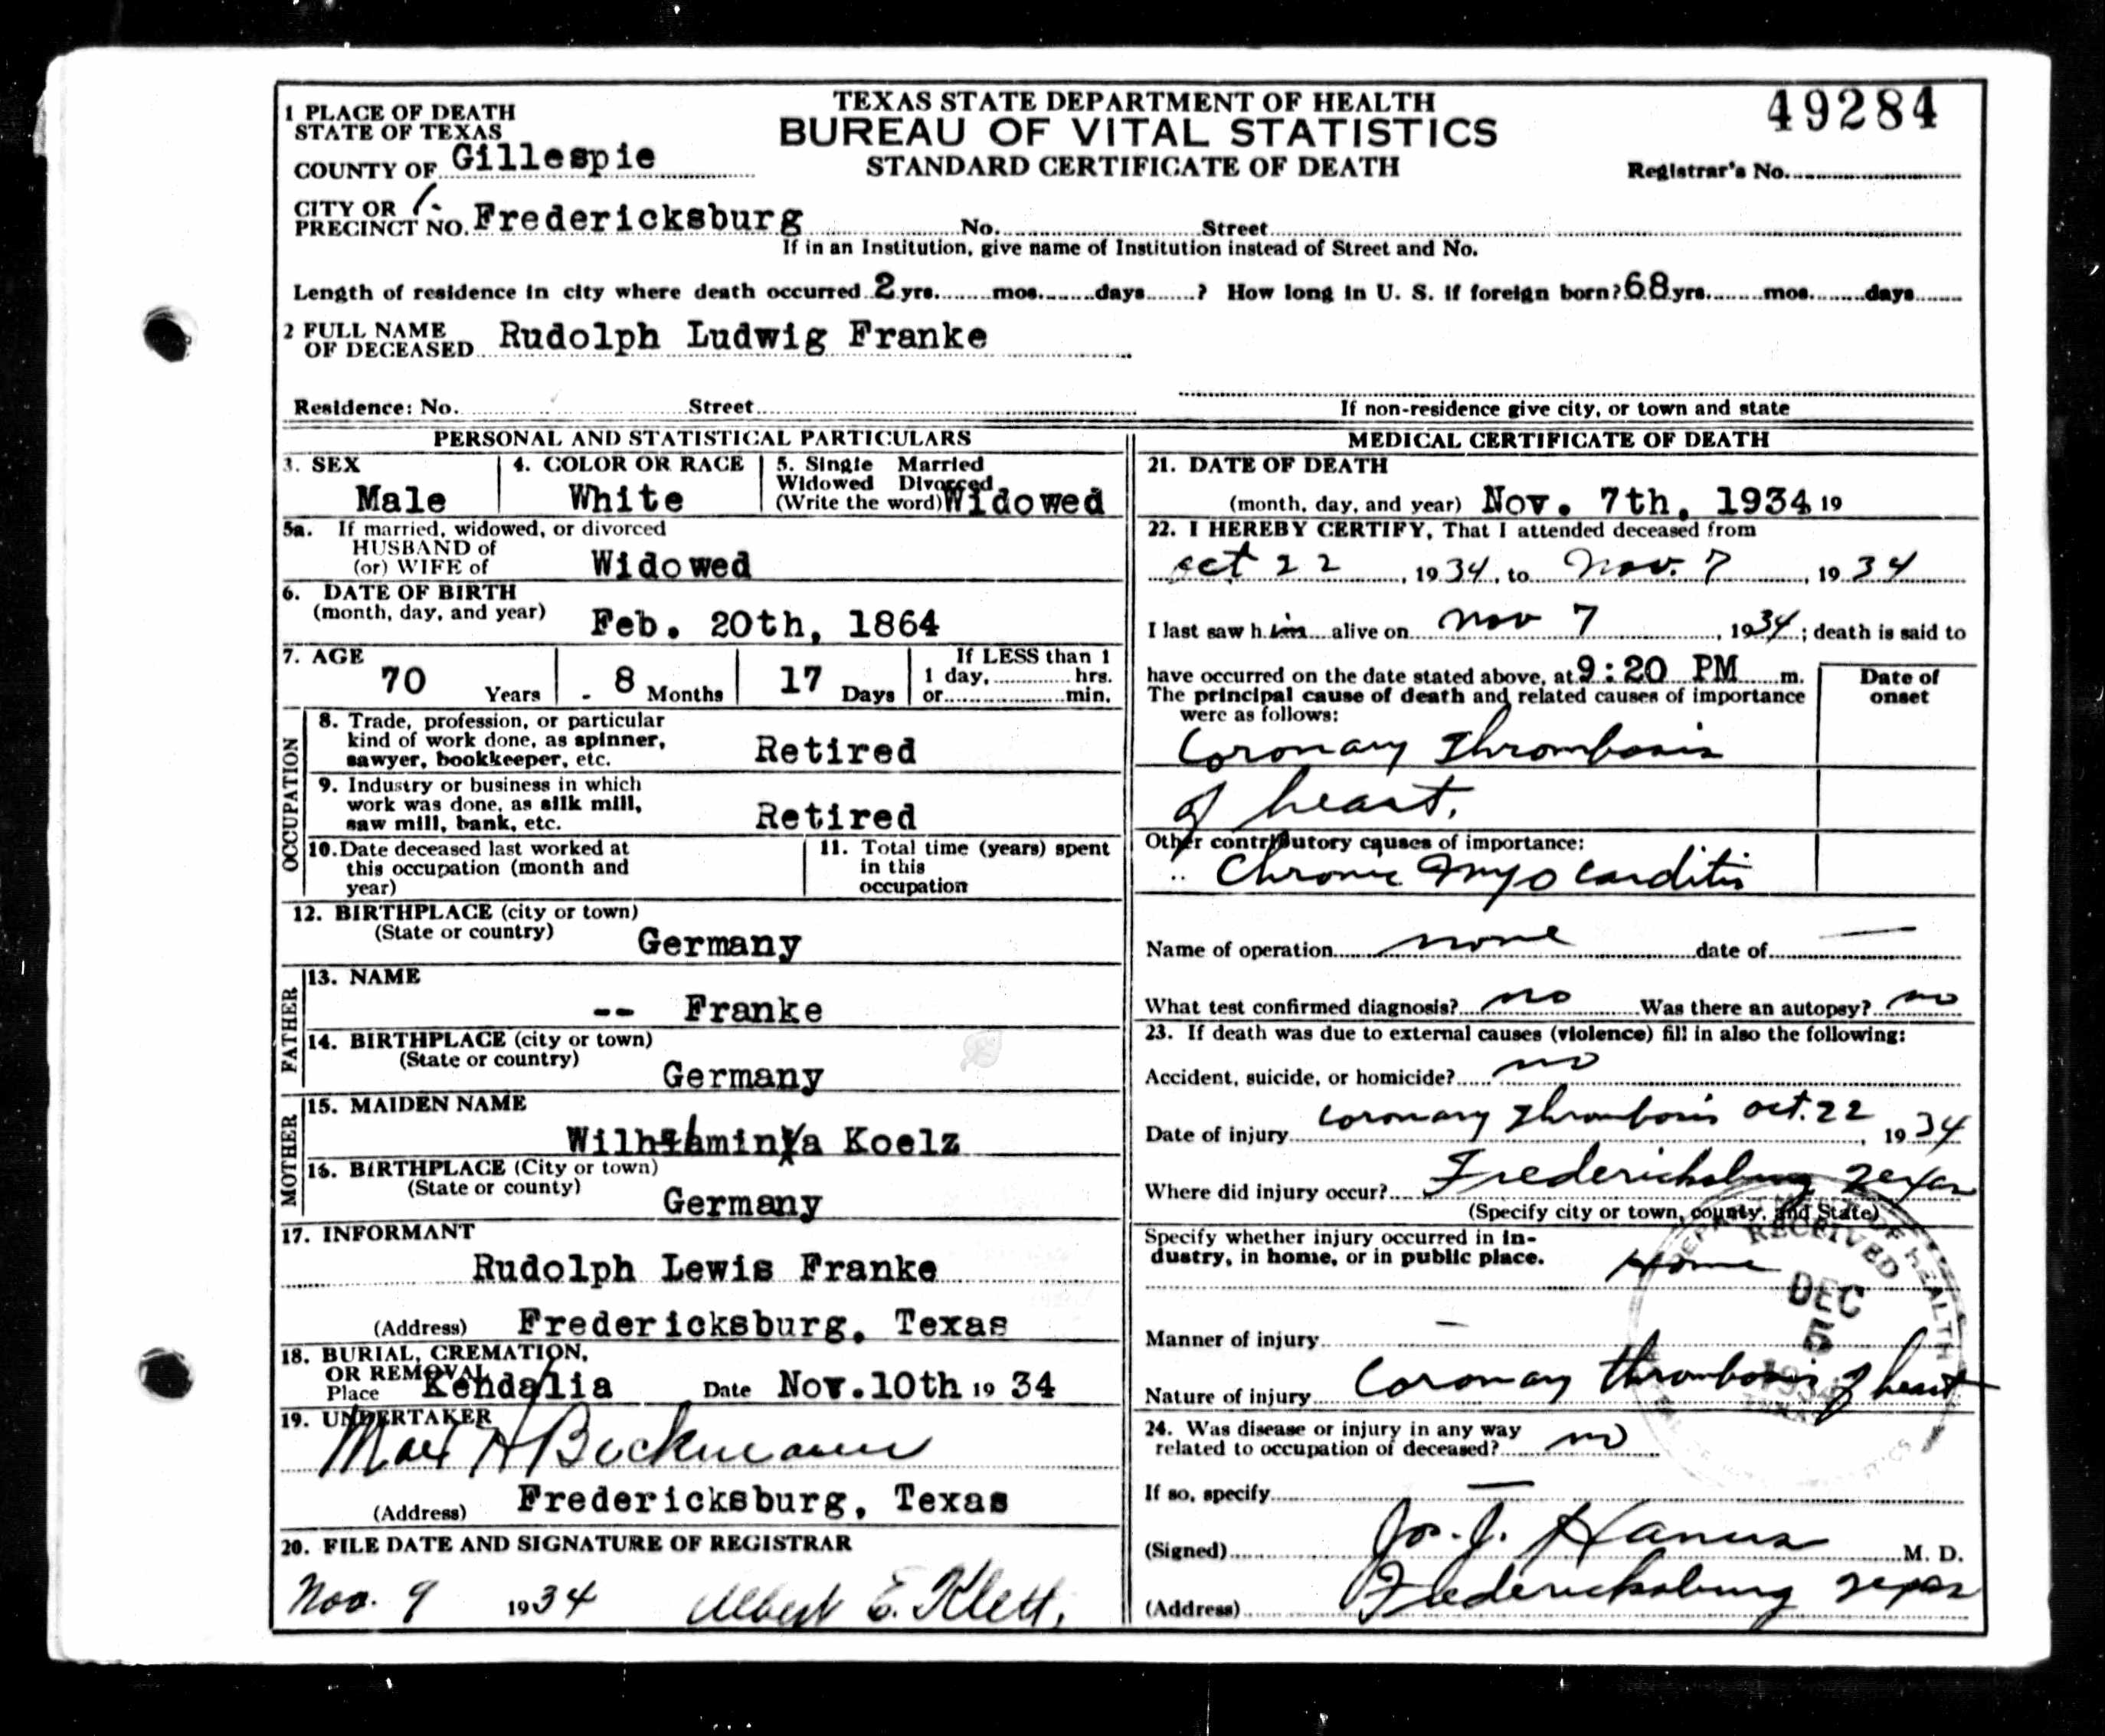 1 PLACE OF DEATH
STATE OF TEXAS
COUNTY OF Gillespie
TEXAS STATE DEPARTMENT OF HEALTH
BUREAU OF VITAL STATISTICS
STANDARD CERTIFICATE OF DEATH
49284
Registrar's No.
CITY OR 1.
PRECINCT NO. Fredericksburg No. Street
If in an Institution, give name of Institution instead of Street and No.
Length of residence in city where death occurred 2 yrs. mos. days ? How long in U. S. if foreign born? 68 yrs. mos. days
2 FULL NAME
OF DECEASED Rudolph Ludwig Franke
Residence: No. Street
If non-residence give city, or town and state
PERSONAL AND STATISTICAL PARTICULARS
3. SEX
Male
4. COLOR OR RACE
White
5. Single Married
Widowed Divorced
(Write the word) Widowed
5a. If married, widowed, or divorced
HUSBAND of
(or) WIFE of Widowed
6. DATE OF BIRTH
(month, day, and year) Feb. 20th, 1864
7. AGE
70 Years 8 Months 17 Days
If LESS than 1
1 day, hrs.
or min.
OCCUPATION
8. Trade, profession, or particular
kind of work done, as spinner,
sawyer, bookkeeper, etc. Retired
9. Industry or business in which
work was done, as silk mill,
saw mill, bank, etc. Retired
10. Date deceased last worked at
this occupation (month and
year)
11. Total time (years) spent
in this
occupation
12. BIRTHPLACE (city or town)
(State or country) Germany
FATHER
13. NAME
-- Franke
14. BIRTHPLACE (city or town)
(State or country)
Germany
MOTHER
15. MAIDEN NAME
Koelz
16. BIRTHPLACE (City or town)
(State or county)
Germany
17. INFORMANT
Rudolph Lewis Franke
(Address) Fredericksburg, Texas
18. BURIAL, CREMATION,
OR REMOVAL
Place Kendalia Date Nov. 10th 19 34
19. UNDERTAKER
(Address) Fredericksburg, Texas
20. FILE DATE AND SIGNATURE OF REGISTRAR
Nov. 9 1934 Albert E. Klett.
MEDICAL CERTIFICATE OF DEATH
21. DATE OF DEATH
(month, day, and year) Nov. 7th, 1934 19
22. I HEREBY CERTIFY, That I attended deceased from
Oct 22, 1934, to Nov. 7, 1934
I last saw h im alive on Nov 7, 1934; death is said to
have occurred on the date stated above, at 9:20 PM m.
The principal cause of death and related causes of importance
were as follows:
Date of
onset
Coronary Thrombosis
of heart.
Other contributory causes of importance:
Chronic Myocarditis
Name of operation none date of —
What test confirmed diagnosis? no Was there an autopsy? no
23. If death was due to external causes (violence) fill in also the following:
Accident, suicide, or homicide? no
Date of injury Coronary Thrombosis Oct. 22, 1934
Where did injury occur? Fredericksburg Texas
(Specify city or town, county, and State)
Specify whether injury occurred in in-
dustry, in home, or in public place. Home
RECEIVED
DEC
5
Manner of injury —
Nature of injury Coronary thrombosis of heart
24. Was disease or injury in any way
related to occupation of deceased? no
If so, specify —
(Signed) Jos. J. Hanus M. D.
(Address) Fredericksburg Texas